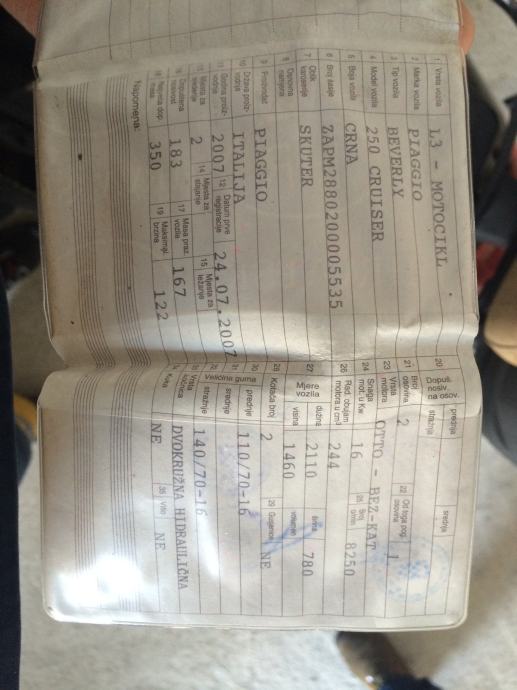 1 Vrsta vozila L3 - MOTOCIKL
2 Marka vozila PIAGGIO
3 Tip vozila BEVERLY
4 Model vozila 250 CRUISER
5 Boja vozila CRNA
6 Broj šasije ZAPM2880200005535
7 Oblik karoserije SKUTER
8 Osnovna namjena
9 Proizvođač PIAGGIO
10 Država proizvodnje ITALIJA
11 Godina proizvodnje 2007 12 Datum prve registracije 24.07.2007
13 Mjesta za sjedenje 2 14 Mjesta za stajanje 15 Mjesta za ležanje
16 Dopuštena nosivost 183 17 Masa praz. vozila 167
18 Najveća dop. masa 350 19 Maksimal. brzina 122
Napomena:
20 Dopuš. nosiv. na osov. prednja srednja
stražnja
21 Broj osovina 2 22 Od toga pog. osovina 1
23 Vrsta motora OTTO - BEZ-KAT
24 Snaga mot. u Kw 16 25 Broj o/min 8250
26 Rad. obujam motora u cm3 244
27 Mjere vozila dužina 2110 širina 780
visina 1460 volumen
28 Kotača broj 2 29 Gusjenice NE
30 Veličina guma prednje 110/70-16
31 srednje
32 stražnje 140/70-16
33 Vrsta kočnica DVOKRUŽNA HIDRAULIČNA
34 Kuka NE 35 Vitlo NE